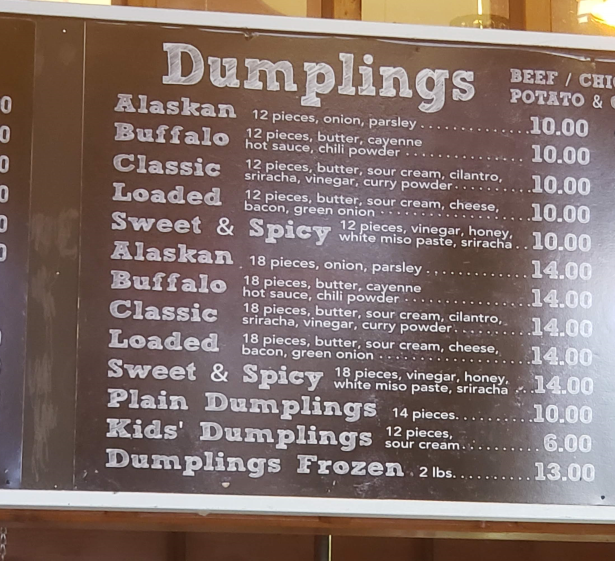 Dumplings
BEEF / CHI
POTATO &
Alaskan 12 pieces, onion, parsley 10.00
Buffalo 12 pieces, butter, cayenne
hot sauce, chili powder 10.00
Classic 12 pieces, butter, sour cream, cilantro,
sriracha, vinegar, curry powder 10.00
Loaded 12 pieces, butter, sour cream, cheese,
bacon, green onion 10.00
Sweet & Spicy 12 pieces, vinegar, honey,
white miso paste, sriracha 10.00
Alaskan 18 pieces, onion, parsley 14.00
Buffalo 18 pieces, butter, cayenne
hot sauce, chili powder 14.00
Classic 18 pieces, butter, sour cream, cilantro,
sriracha, vinegar, curry powder 14.00
Loaded 18 pieces, butter, sour cream, cheese,
bacon, green onion 14.00
Sweet & Spicy 18 pieces, vinegar, honey,
white miso paste, sriracha 14.00
Plain Dumplings 14 pieces 10.00
Kids' Dumplings 12 pieces,
sour cream 6.00
Dumplings Frozen 2 lbs. 13.00